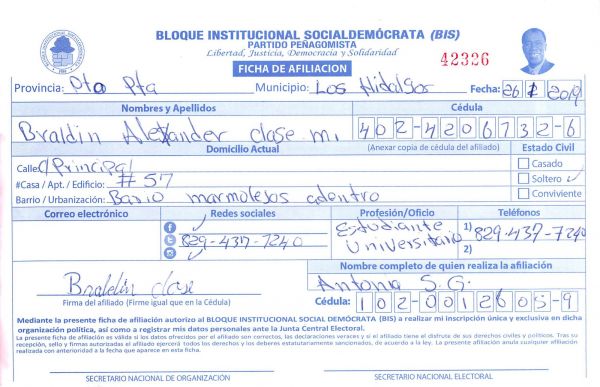 BLOQUE INSTITUCIONAL SOCIALDEMÓCRATA (BIS)
PARTIDO PEÑAGOMISTA
Libertad, Justicia, Democracia y Solidaridad
42326
FICHA DE AFILIACION
Provincia: Pto Pta Municipio: Los Hidalgos Fecha: 26 1 2019
Nombres y Apellidos Cédula
Braldin Alexander clase m. 402-4206732-6
Domicilio Actual (Anexar copia de cédula del afiliado) Estado Civil
Calle: C/ Principal Casado
#Casa / Apt. / Edificio: # 57 Soltero ✓
Barrio / Urbanización: Barrio marmolejos adentro Conviviente
Correo electrónico Redes sociales Profesión/Oficio Teléfonos
829-437-7240 Estudiante Universitario 1) 829-437-7240
2)
Nombre completo de quien realiza la afiliación
Braldin clase Antonia S. G.
Firma del afiliado (Firme igual que en la Cédula) Cédula: 102-0012605-9
Mediante la presente ficha de afiliación autorizo al BLOQUE INSTITUCIONAL SOCIAL DEMÓCRATA (BIS) a realizar mi inscripción única y exclusiva en dicha
organización política, así como a registrar mis datos personales ante la Junta Central Electoral.
La presente ficha de afiliación es válida si los datos ofrecidos por el afiliado son correctos, las declaraciones veraces y si el afiliado tiene el disfrute de sus derechos civiles y políticos. Tras su
recepción, sello y firmas autorizadas el afiliado ejercerá todos los derechos y los deberes estatutariamente sancionados, de acuerdo a la ley. La presente afiliación anula cualquier afiliación
realizada con anterioridad a la fecha que aparece en esta ficha.
SECRETARIO NACIONAL DE ORGANIZACIÓN SECRETARIO NACIONAL ELECTORAL